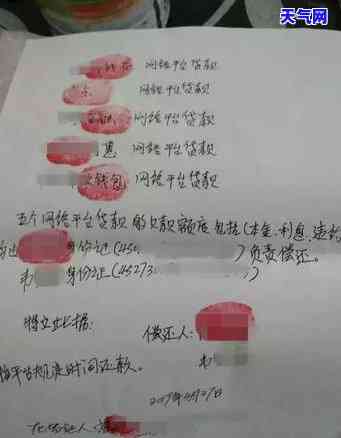 天气网
网络平台贷款
网络平台贷款
网络平台贷款
惠 网络平台贷款
钱包 网络平台贷款
五个网络平台贷款的欠款额度包括(本金、利息、违约
身份证(450 )负责偿还。
韦 身份证(45273 )
特立此据: 偿还人:
韦
按平台规定时间还款。
2017年4月27日
在场证人